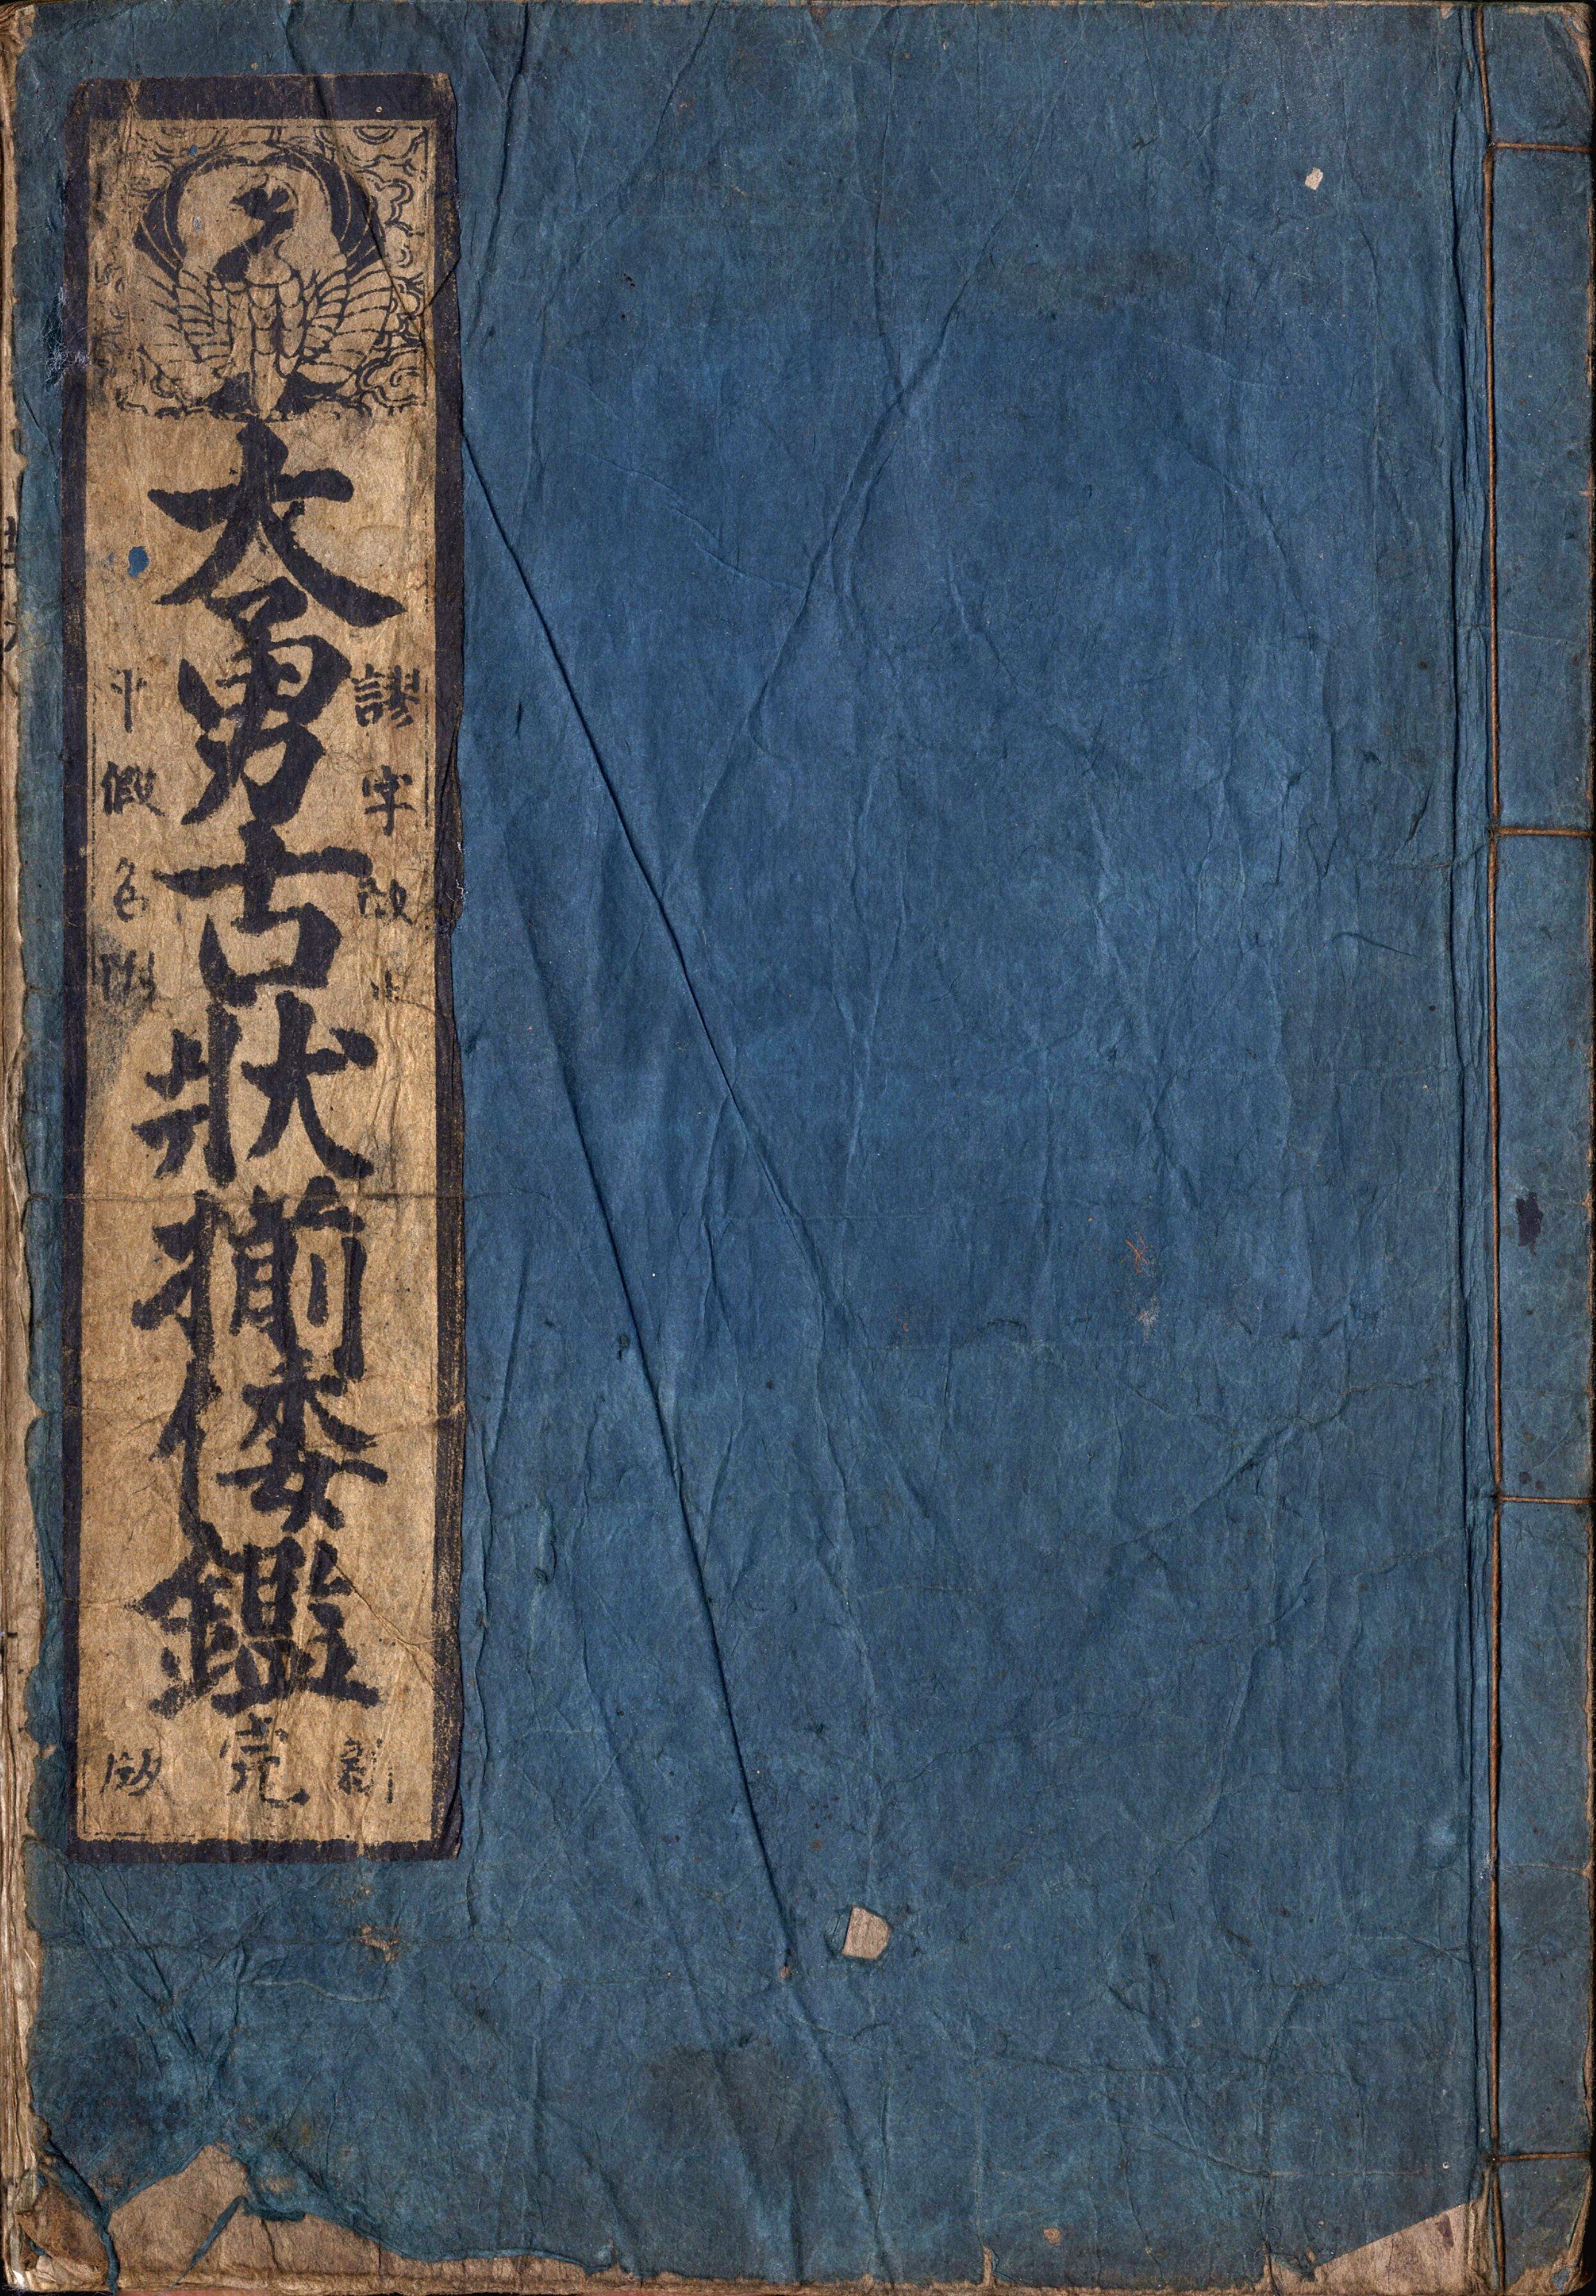 謬字改正
大勇古狀揃倭鑑
平假名附
新
完
版